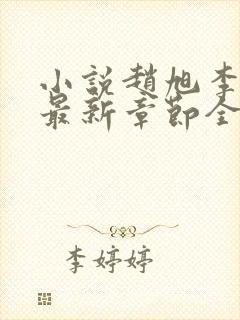 小説趙旭李
最新章節全
李婷婷